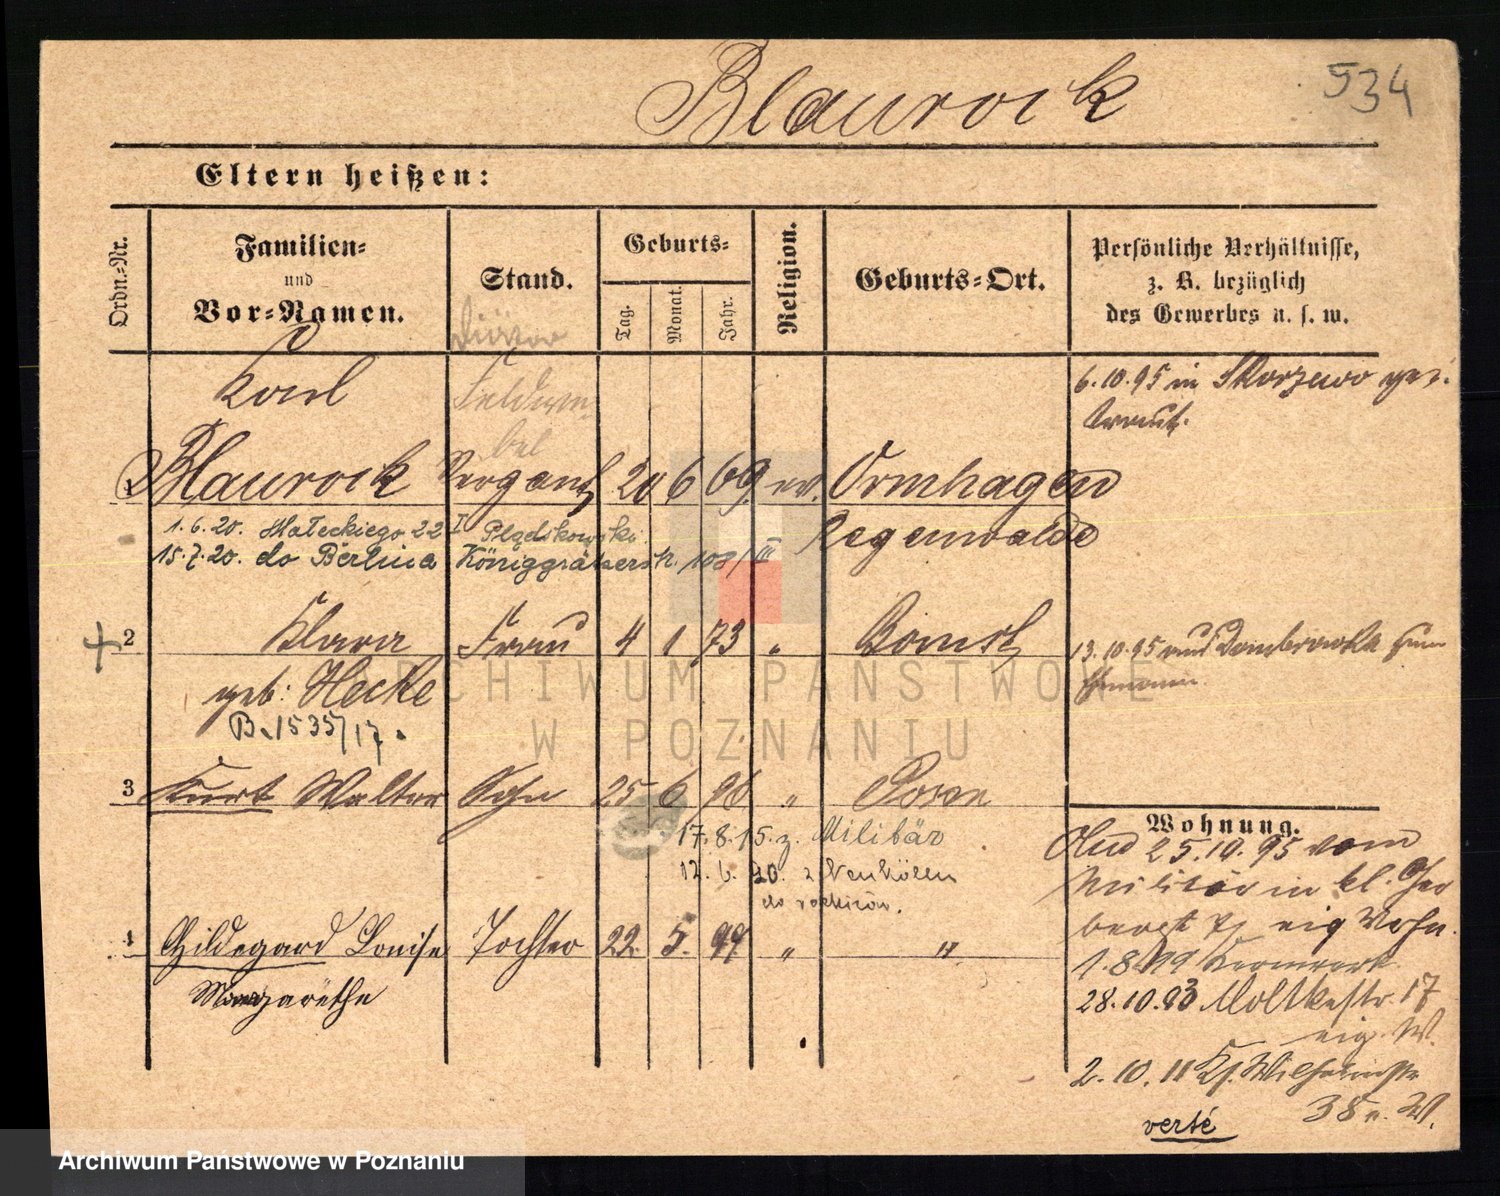 Blaurock
534
Eltern heißen:
Ordn.-Nr.
Familien-
und
Vor-Namen.
Stand.
Geburts-
Tag.
Monat.
Jahr.
Religion.
Geburts-Ort.
Persönliche Verhältnisse,
z. B. bezüglich
des Gewerbes u. s. w.
Karl
Feldwe-
bel
6.10.95 in Skorzewo ge-
traut.
1 Blaurock Sergeant 20 6 69 ev. Ormhagen
Regenwalde
1.6.20. Małeckiego 22 I
15.7.20. do Berlina Königgrätzerstr. 108/III
2 Klara Frau 4 1 73 " Bomst
geb: Hecke
B. 1535/17.
13.10.95 aus Dombrowka zum
Ehemann.
3 Kurt Walter Sohn 25 6 96 " Posen
17.8.15. z. Militär
12.6.20. z Neukölln
4 Hildegard Louise Tochter 22. 5. 99 " "
Margarethe
Wohnung.
25.10.95 vom
Militär in kl. Ger
berst 7 eig Wohn.
1.8.99 Kernwerk
28.10.03 Moltkestr. 17
eig. W.
2.10.11 Ks. Wilhelmstr
38 e. W.
verté
ARCHIWUM PAŃSTWOWE
W POZNANIU
Archiwum Państwowe w Poznaniu